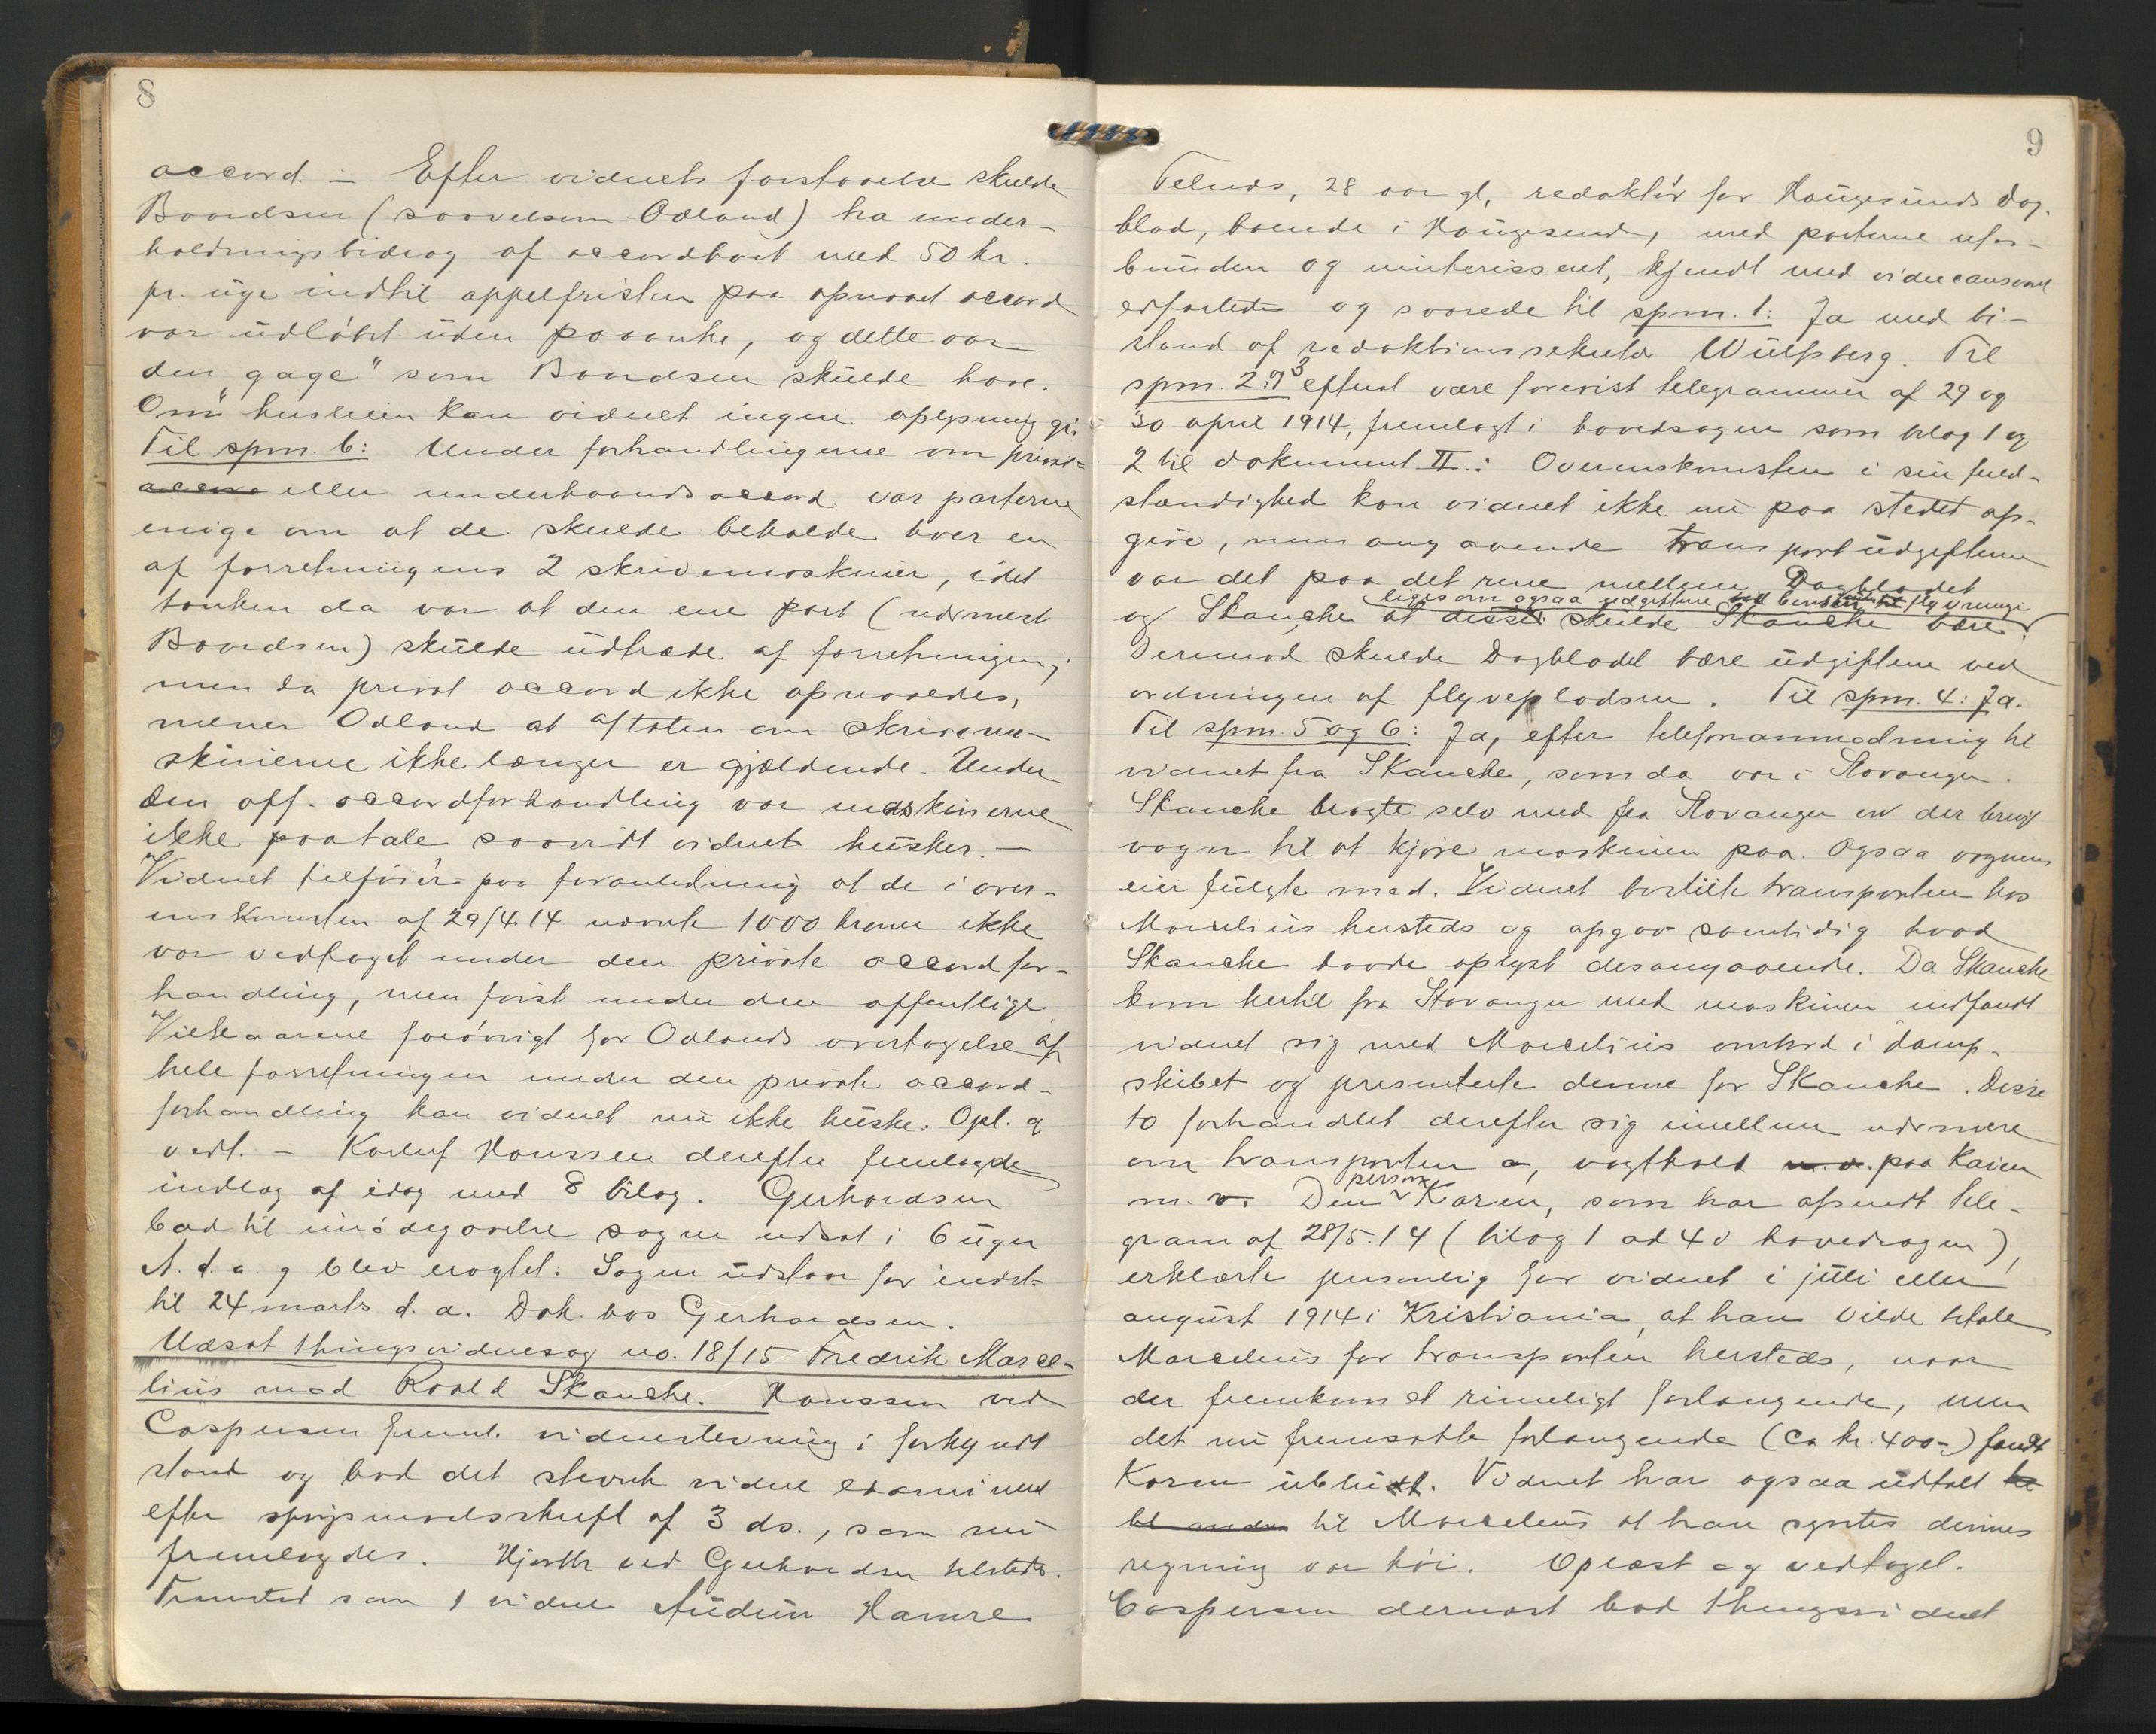 8
accord. – Efter vidnets forstaaelse skulde
Baardsen (saavelsom Odland) ha under-
holdningsbidrag af accordboet med 50 kr.
pr. uge indtil appelfristen paa opnaaet accord
var udløbet uden paaanke, og dette var
den „gage" som Baardsen skulde have.
Om husleien kan vidnet ingen oplysning gi.
Til spm. 6: Under forhandlingerne om privat-
accord eller underhaandsaccord var parterne
enige om at de skulde beholde hver en
af forretningens 2 skrivemaskiner, idet
tanken da var at den ene part (nærmest
Baardsen) skulde udtræde af forretningen;
men da privat accord ikke opnaaedes,
mener Odland at aftalen om skrivema-
skinerne ikke længer er gjældende. Under
den off. accordforhandling var maskinerne
ikke paatale saavidt vidnet husker. –
Vidnet tilføier paa foranledning at de i over-
enskomsten af 29/4.14 nævnte 1000 kroner ikke
var vedtaget under den private accordfor-
handling, men først under den offentlige.
Vilkaarene forøvrigt for Odlands overtagelse af
hele forretningen under den private accord-
forhandling kan vidnet nu ikke huske. Opl. og
vedt. – Karluf Hanssen derefter fremlagde
indlæg af idag med 8 bilag. Gerhardsen
bad til imødegaaelse sagen udsat i 6 uger
A. d. a. g blev eragtet: Sagen udstaar for indst.
til 24 marts d. a. Dok. hos Gerhardsen.
Udsat thingsvidnesag no. 18/15 Fredrik Marce-
lius mod Roald Skanche. Hanssen ved
Caspersen freml. vidnestevning i forkyndt
stand og bad det stevnte vidne examineret
efter spørgsmaalsskrift af 3 ds., som nu
fremlagdes. Hjorth ved Gerhardsen tilstede.
Fremstod som 1 vidne Audun Hamre
9
Telnes, 28 aar gl, redaktør for Haugesunds Dag-
blad, boende i Haugesund, med parterne ufor-
bunden og uinterisseret, kjendt med vidneansvaret
edfæstedes og svarede til spm. 1: Ja med bi-
stand af redaktionssekretær Wulfsberg. Til
spm. 2 og 3 efterat være forevist telegrammer af 29 og
30 april 1914, fremlagt i hovedsagen som bilag 1 og
2 til dokument II.: Overenskomsten i sin fuld-
stændighed kan vidnet ikke nu paa stedet op-
give, men angaaende transportudgifterne
var det paa det rene mellem Dagbladet
ligesom ogsaa udgifterne til bensin til flyvninge
og Skanche at disse skulde Skanche bære.
Derimod skulde Dagbladet bære udgifterne ved
ordningen af flyvepladsen. Til spm. 4: Ja.
Til spm. 5 og 6: Ja, efter telefonanmodning til
vidnet fra Skanche, som da var i Stavanger.
Skanche bragte selv med fra Stavanger en der brugt
vogn til at kjøre maskinen paa. Ogsaa vognens
eier fulgte med. Vidnet bestilte transporten hos
Marcelius hersteds og opgav samtidig hvad
Skanche havde oplyst desangaaende. Da Skanche
kom hertil fra Stavanger med maskinen indfandt
vidnet sig med Marcelius ombord i damp-
skibet og presenterte denne for Skanche. Disse
to forhandlet derefter sig imellem nærmere
om transporten a, vagthold m. v. paa kaien
m. v. Den person Karen, som har afsendt tele-
gram af 28/5.14 (bilag 1 ad 40 hovedsagen),
erklærte personlig for vidnet i juli eller
august 1914 i Kristiania, at han vilde betale
Marcelius for transporten hersteds, naar
der fremkom et rimeligt forlangende, men
det nu fremsatte forlangende (ca kr. 400.-) fandt
Karen ublidt. Vidnet har ogsaa udtalt
til Marcelius at han syntes dennes
regning var høi. Oplæst og vedtaget.
Caspersen dernæst bad thingsvidnet